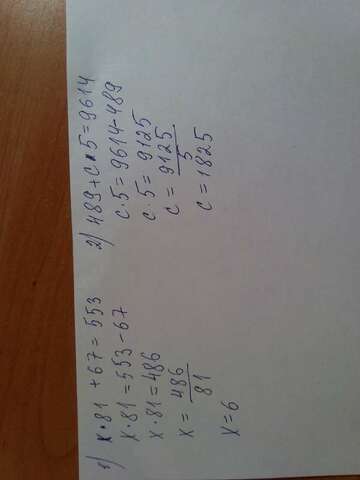 1) x · 81 + 67 = 553
x · 81 = 553 - 67
x · 81 = 486
x = 486/81
x = 6
2) 489 + c · 5 = 9614
c · 5 = 9614 - 489
c · 5 = 9125
c = 9125/5
c = 1825